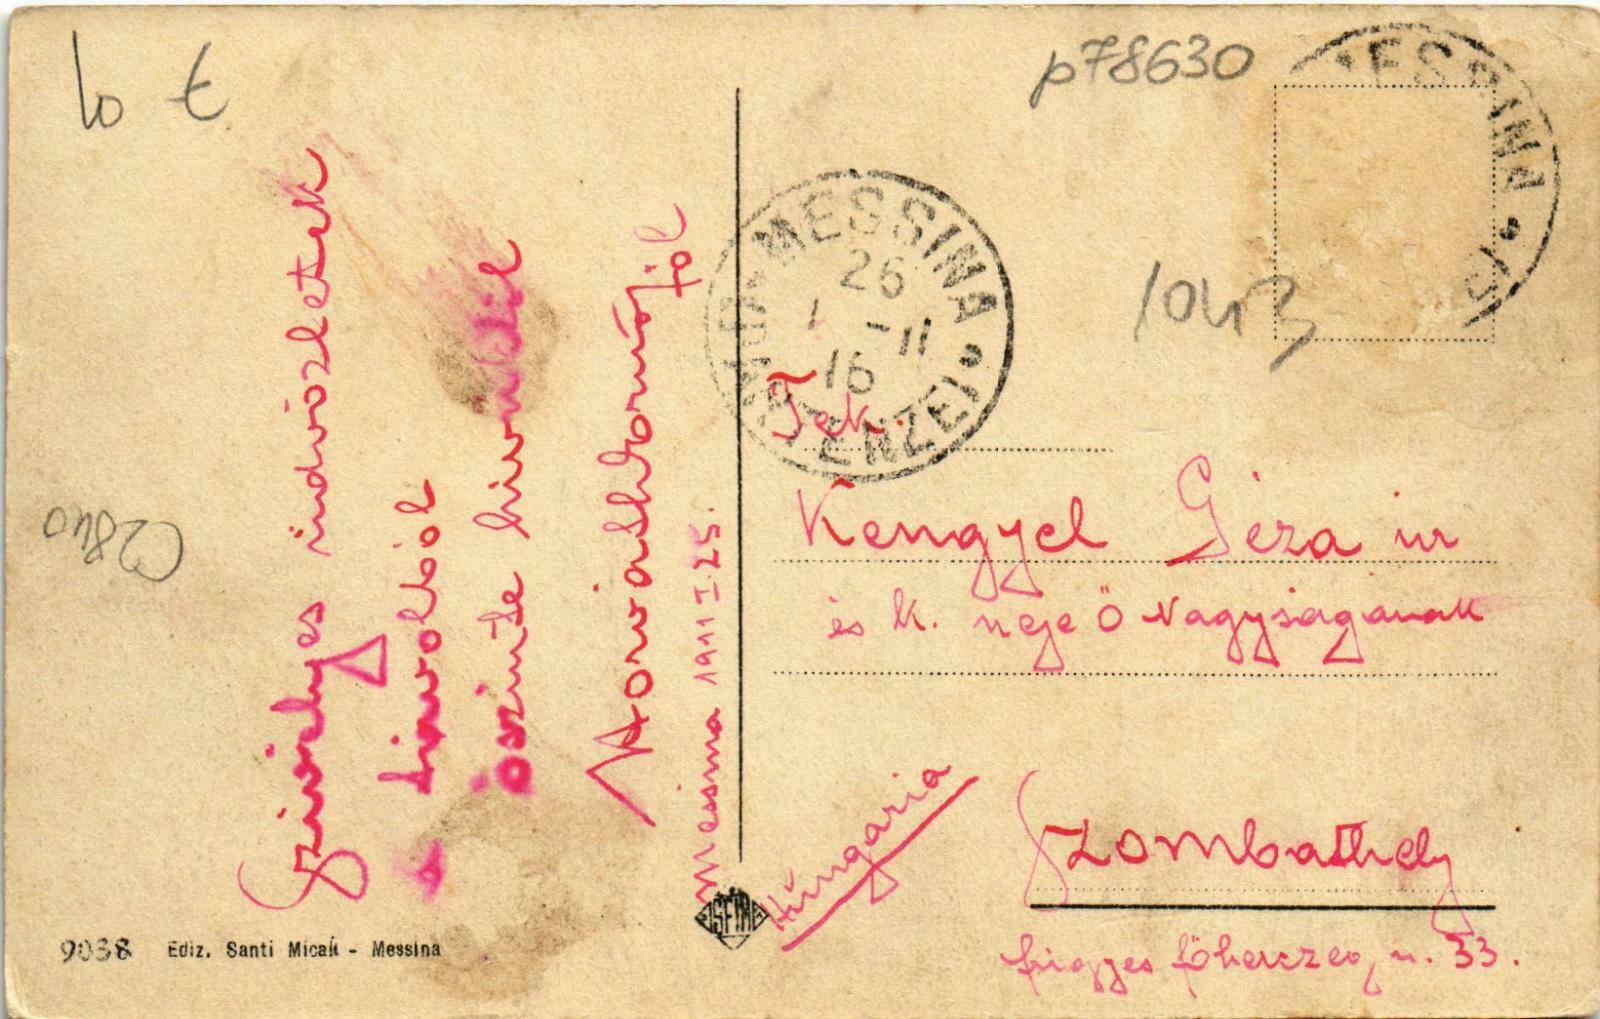 10 €
p78630
MESSINA
MESSINA
26
1-11
16
1043
C2840
Szivélyes üdvözletek
a távolból
őszinte hivedtől
Horváth
Messina 1911 I. 25.
Tek.
Kengyel Géza úr
és k. neje Ő Nagyságának
Hungaria
Szombathely
frigyes főherczeg u. 33.
9038 Ediz. Santi Micali - Messina